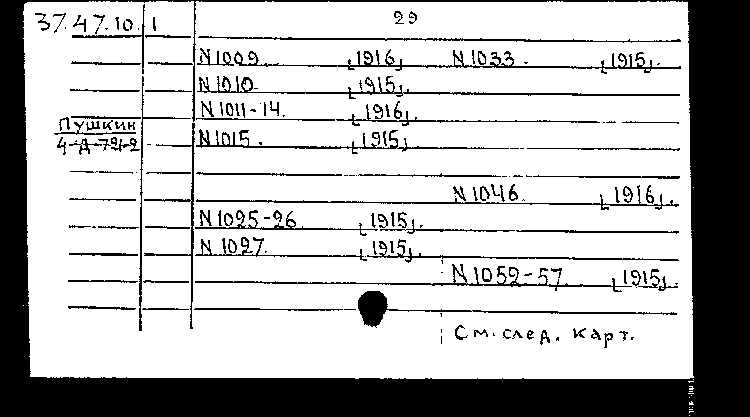 37.47.10. 1 29
N 1009. [1916] N 1033. [1915].
N 1010. [1915].
N 1011-14. [1916]
Пушкин
N 1015. [1915].
N 1046. [1916].
N 1025-26. [1915].
N 1027. [1915].
N 1052-57. [1915].
См. след. карт.